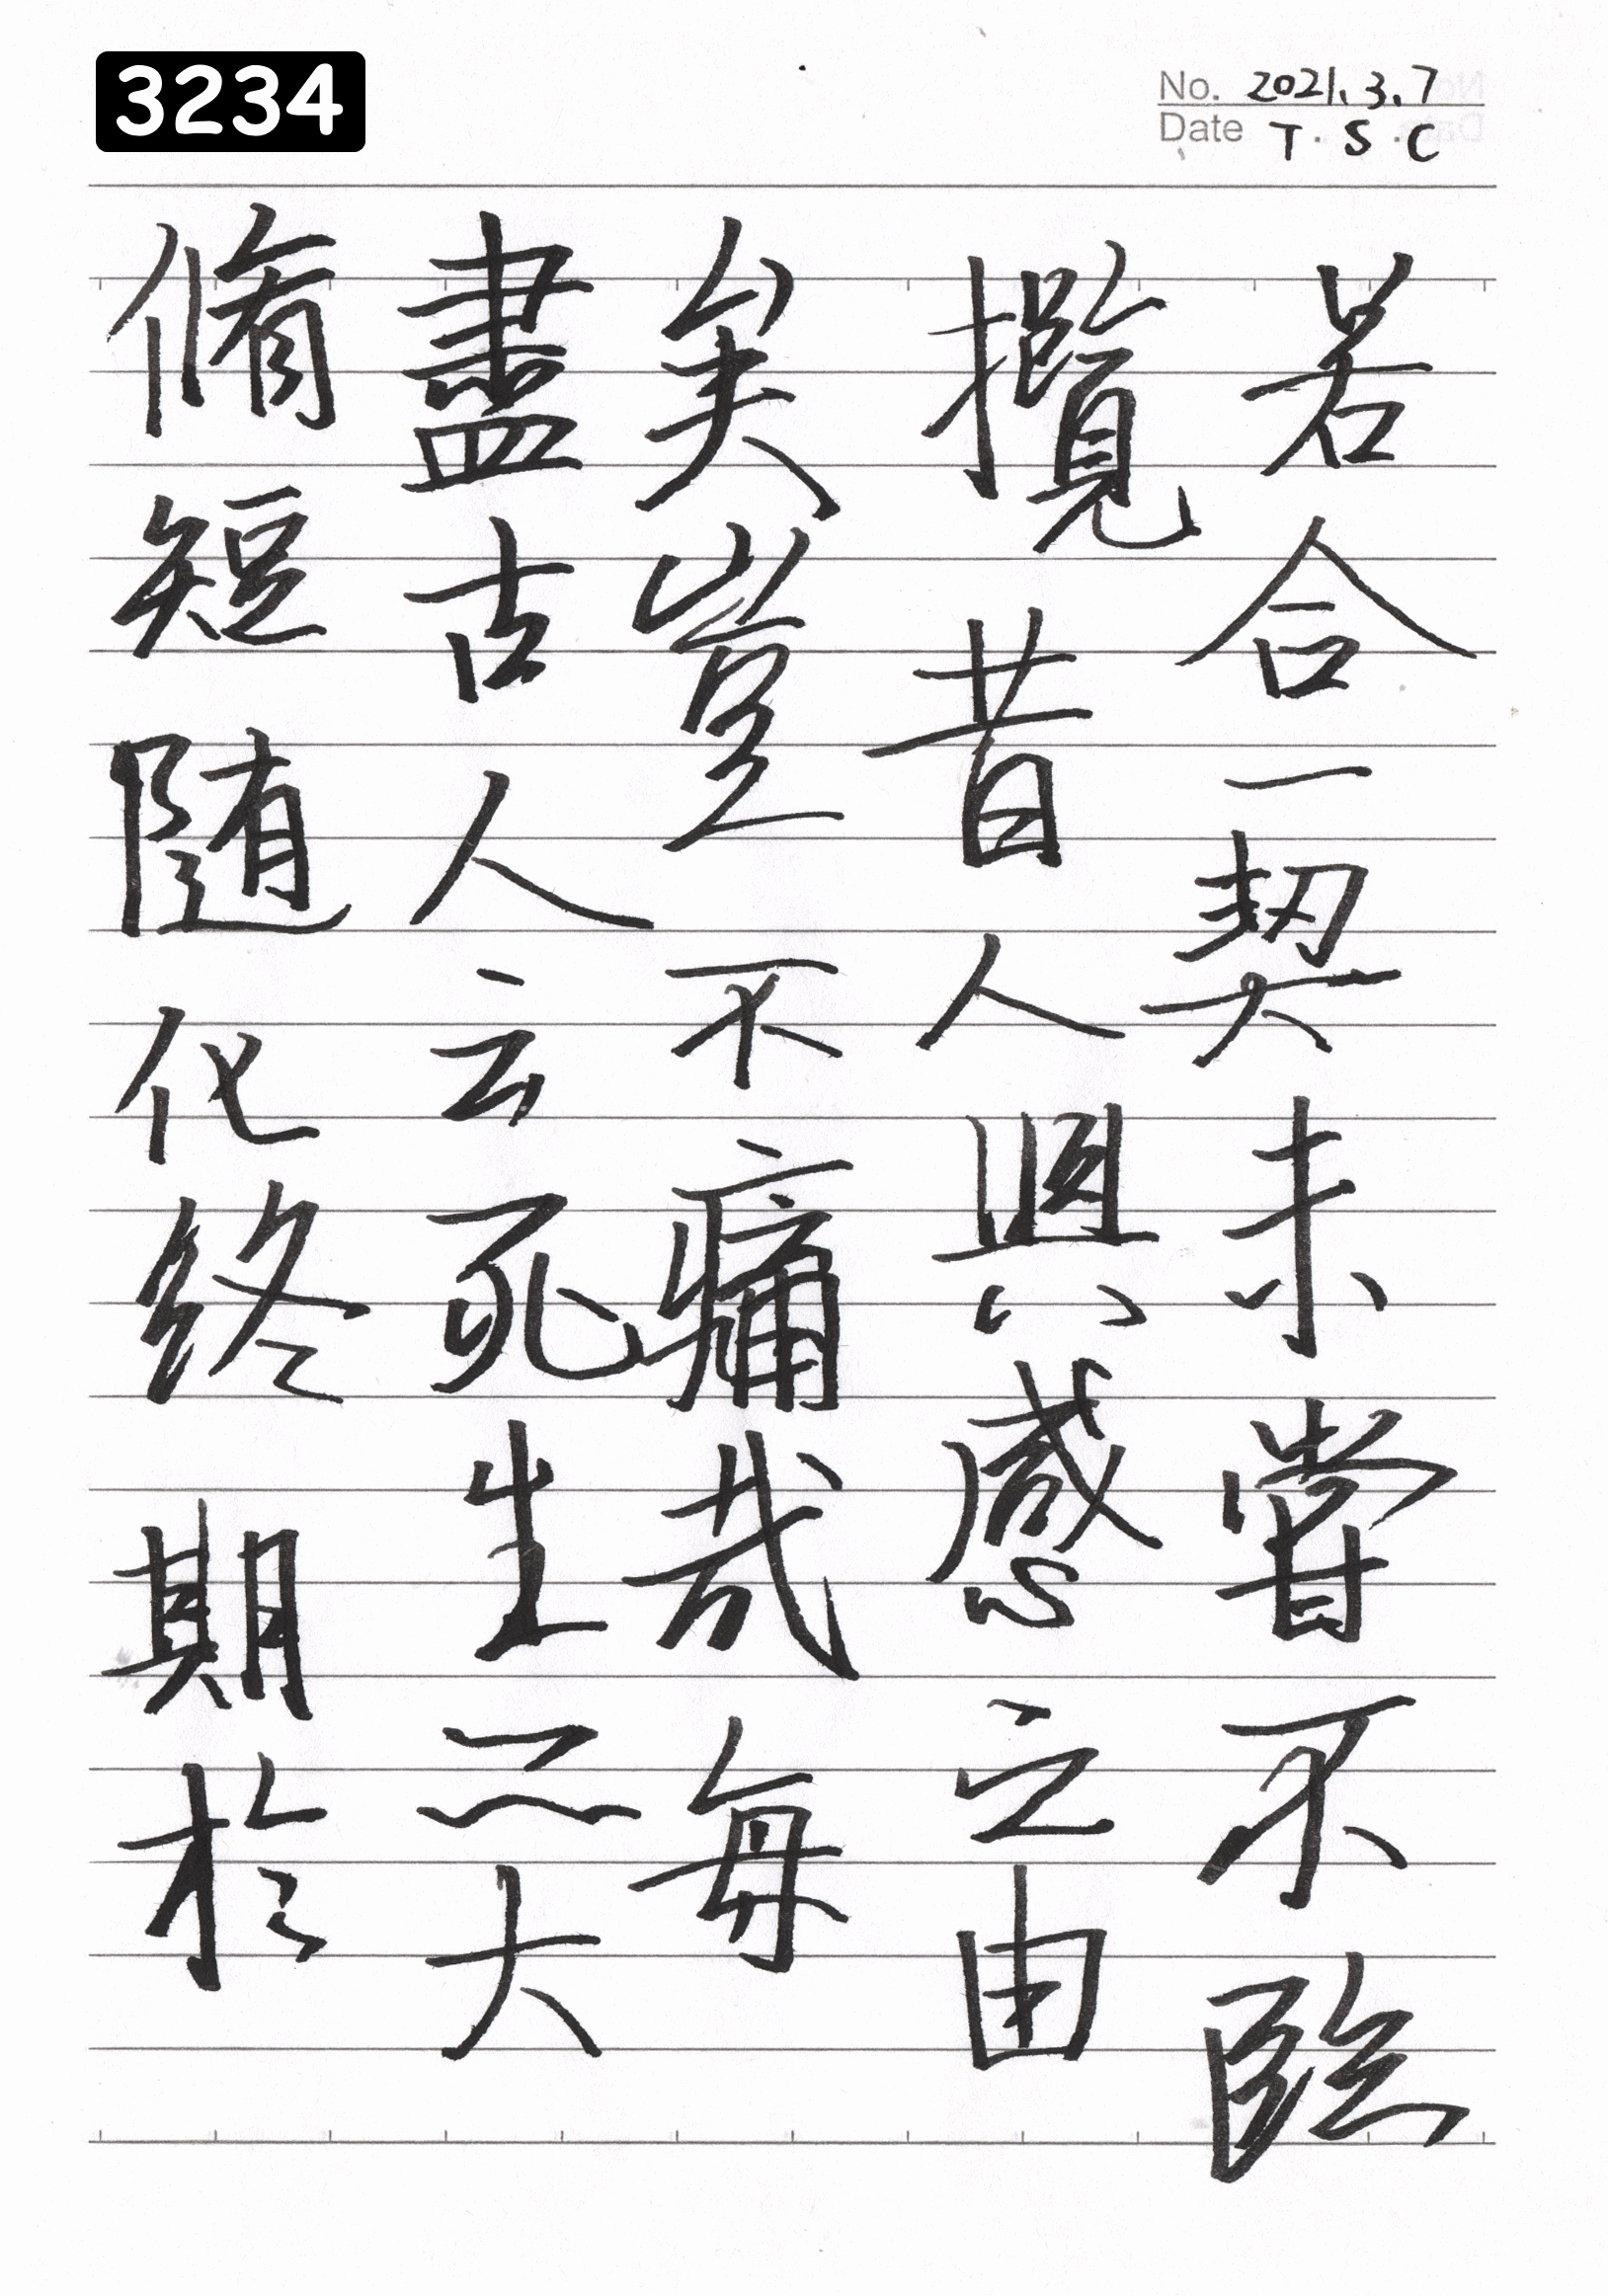 3234
No. 2021.3.7
Date T.S.C
若合一契未嘗不臨
攬昔人興感之由
矣豈不痛哉每
盡古人云死生亦大
脩短随化終期於